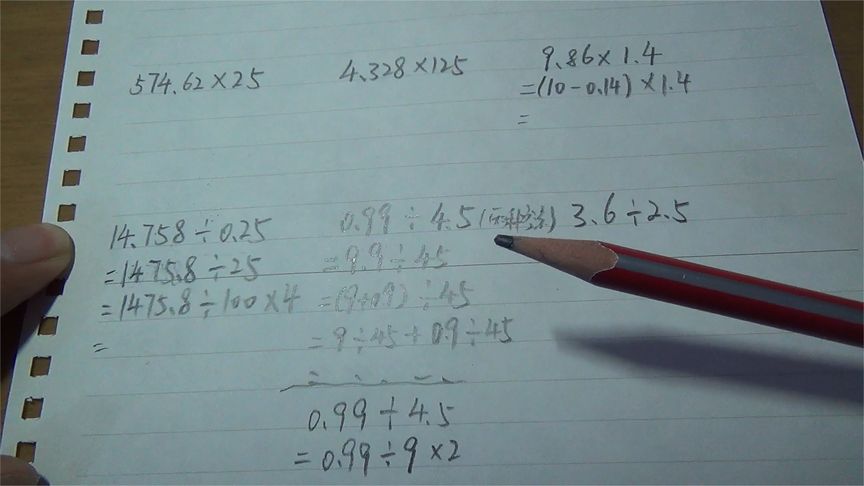 574.62×25
4.328×125
9.86×1.4
=(10-0.14)×1.4
=
14.758÷0.25
=1475.8÷25
=1475.8÷100×4
=
0.99÷4.5(两种方法)
=9.9÷45
=(9+0.9)÷45
=9÷45+0.9÷45
0.99÷4.5
=0.99÷9×2
3.6÷2.5